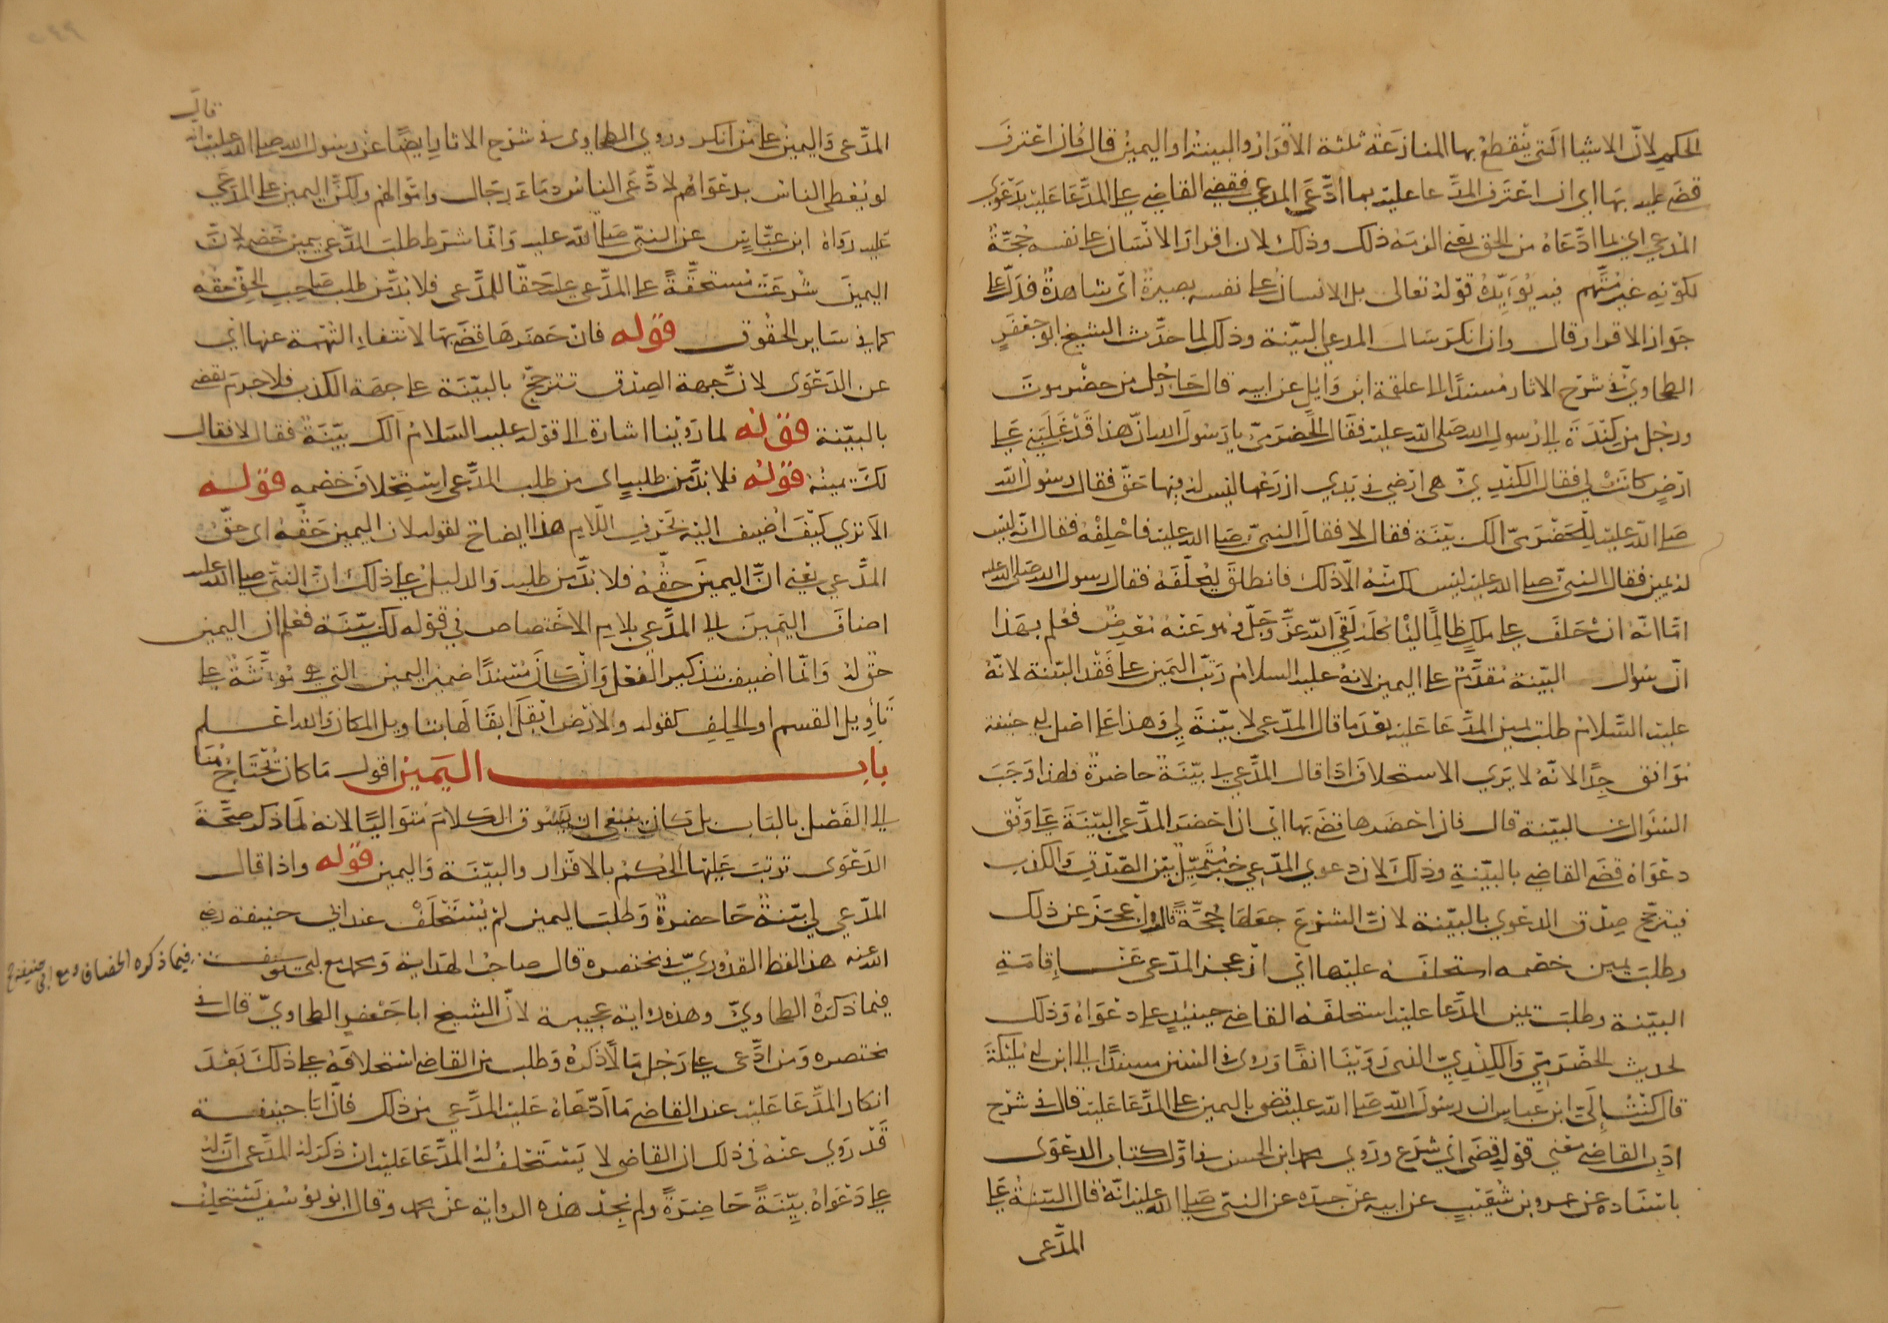 الحكم لان الاشيا التي ينقطع بها المنازعة ثلثة الاقرار والبينة او اليمين قال فان اعترف
قضى عليه بها اي ان اعترف المدعا عليه بما ادعى المدعي فقضي القاضي على المدعا عليه بدعوي
المدعي اي بما ادعاه من الحق يعني الزمه ذلك وذلك لان اقرار الانسان على نفسه حجة
لكونه غير متهم فيه يؤيده قوله تعالى بل الانسان على نفسه بصيرة اي شاهدة فدل على
جواز الاقرار قال وان انكر سال المدعي البينة وذلك لما حدث الشيخ ابو جعفر
الطحاوي في شرح الاثار مسندا الى علقمة ابن وايل عن ابيه قال جا رجل من حضرموت
ورجل من كندة الى رسول الله صلى الله عليه فقال الحضرمي يا رسول الله ان هذا قد غلبني على
ارض كانت لي فقال الكندي هي ارضي في يدي ازرعها ليس له فيها حق فقال رسول الله
صلى الله عليه للحضرمي الك بينة فقال لا فقال النبي صلى الله عليه فاحلفه فقال انه ليس
له يمين فقال النبي صلى الله عليه ليس لك منه الا ذلك فانطلق ليحلفه فقال رسول الله صلى الله عليه
اما انه ان حلف على ملك ظالما لياكله لقي الله عز وجل وهو عنه معرض فعلم بهذا
ان سوال البينة مقدم على اليمين لانه عليه السلام رتب اليمين على فقد البينة لانه
عليه السلام طلب يمين المدعا عليه بعد ما قال المدعي لا بينة لي وهذا على اصل ابي حنيفة
يوافق جدا لانه لا يري الاستحلاف اذا قال المدعي لي بينة حاضرة فلهذا وجب
السئوال عن البينة قال فان احضرها قضى بها اي ان احضر المدعي البينة على وفق
دعواه قضى القاضي بالبينة وذلك لان دعوي المدعي خبر متميل بين الصدق والكذب
فيترجح صدق الدعوي بالبينة لان الشرع جعلها حجة قال وان عجز عن ذلك
وطلب يمين خصمه استحلفه عليها اي ان عجز المدعي عن اقامة
البينة وطلب يمين المدعا عليه استحلفه القاضي حينيذ على دعواه وذلك
لحديث الحضرمي والكندي الذي روينا انفا وروى في السنن مسندا الى ابن ابي مليكة
قال كتب الي ابن عباس ان رسول الله صلى الله عليه قضى باليمين على المدعا عليه قال في شرح
ادب القاضي معني قوله قضى اي شرع وروي محمد ابن الحسن في اول كتاب الدعوى
باسناده عن عمرو بن شعيب عن ابيه عن جده عن النبي صلى الله عليه انه قال البينة على
المدعى
قال
المدعى واليمين على من انكر وروي الطحاوى في شرح الاثار ايضا عن رسول الله صلى الله عليه انه
لو يعطى الناس بدعواهم لادعى الناس دماء رجال واموالهم ولكن اليمين على المدعي
عليه رواه ابن عباس عن النبي صلى الله عليه وانما شرط طلب المدعي يمين خصمه لان
اليمين شرعت مستحقة على المدعي عليه حقا للمدعى فلا بد من طلب صاحب الحق حقه
كما في ساير الحقوق قوله فان حضرها قضى بها لانتفاء التهمة عنها اي
عن الدعوى لان جهة الصدق تترجح بالبينة على جهة الكذب فلا جرم يقضى
بالبينة قوله لما روينا اشارة الى قوله عليه السلام الك بينة فقال لا فقال
لك يمينه قوله فلا بد من طلبه اى من طلب المدعى استحلاف خصمه قوله
الا تري كيف اضيف اليه بحرف اللام هذا ايضاح لقوله لان اليمين حقه اى حق
المدعي يعني ان اليمين حقه فلا بد من طلبه والدليل على ذلك ان النبي صلى الله عليه
اضاف اليمين الى المدعي بلام الاختصاص في قوله لك يمينه فعلم ان اليمين
حق له وانما اضيف بتذكير الفعل وان كان مسندا ضمير اليمين التي هي مؤنثة على
تاويل القسم او الحلف كقوله ولا ارض ابقل ابقالها بتاويل المكان والله اعلم
باب اليمين اقول ما كان تحتاج هنا
الى الفصل بالباب بل كان ينبغي ان يسوق الكلام متواليا لانه لما ذكر صحة
الدعوى ترتب عليها الحكم بالاقرار والبينة واليمين قوله واذا قال
المدعي لي بينة حاضرة وطلب اليمين لم يستحلف عند ابي حنيفة رضي
الله عنه هذا لفظ القدوري في مختصره قال صاحب الهداية ومحمد مع ابي يوسف
فيما ذكره الخصاف ومع ابي حنيفة رح
فيما ذكره الطحاوي وهذه رواية عجيبة لان الشيخ ابا جعفر الطحاوي قال في
مختصره ومن ادعى على رجل مالا ذكره وطلب من القاضي استحلافه على ذلك بعد
انكار المدعا عليه عند القاضي ما ادعاه عليه المدعي من ذلك فان ابا حنيفة
قد روي عنه في ذلك ان القاضي لا يستحلف له المدعا عليه ان ذكر له المدعي ان له
على دعواه بينة حاضرة ولم نجد هذه الرواية عن محمد وقال ابو يوسف يستحلف